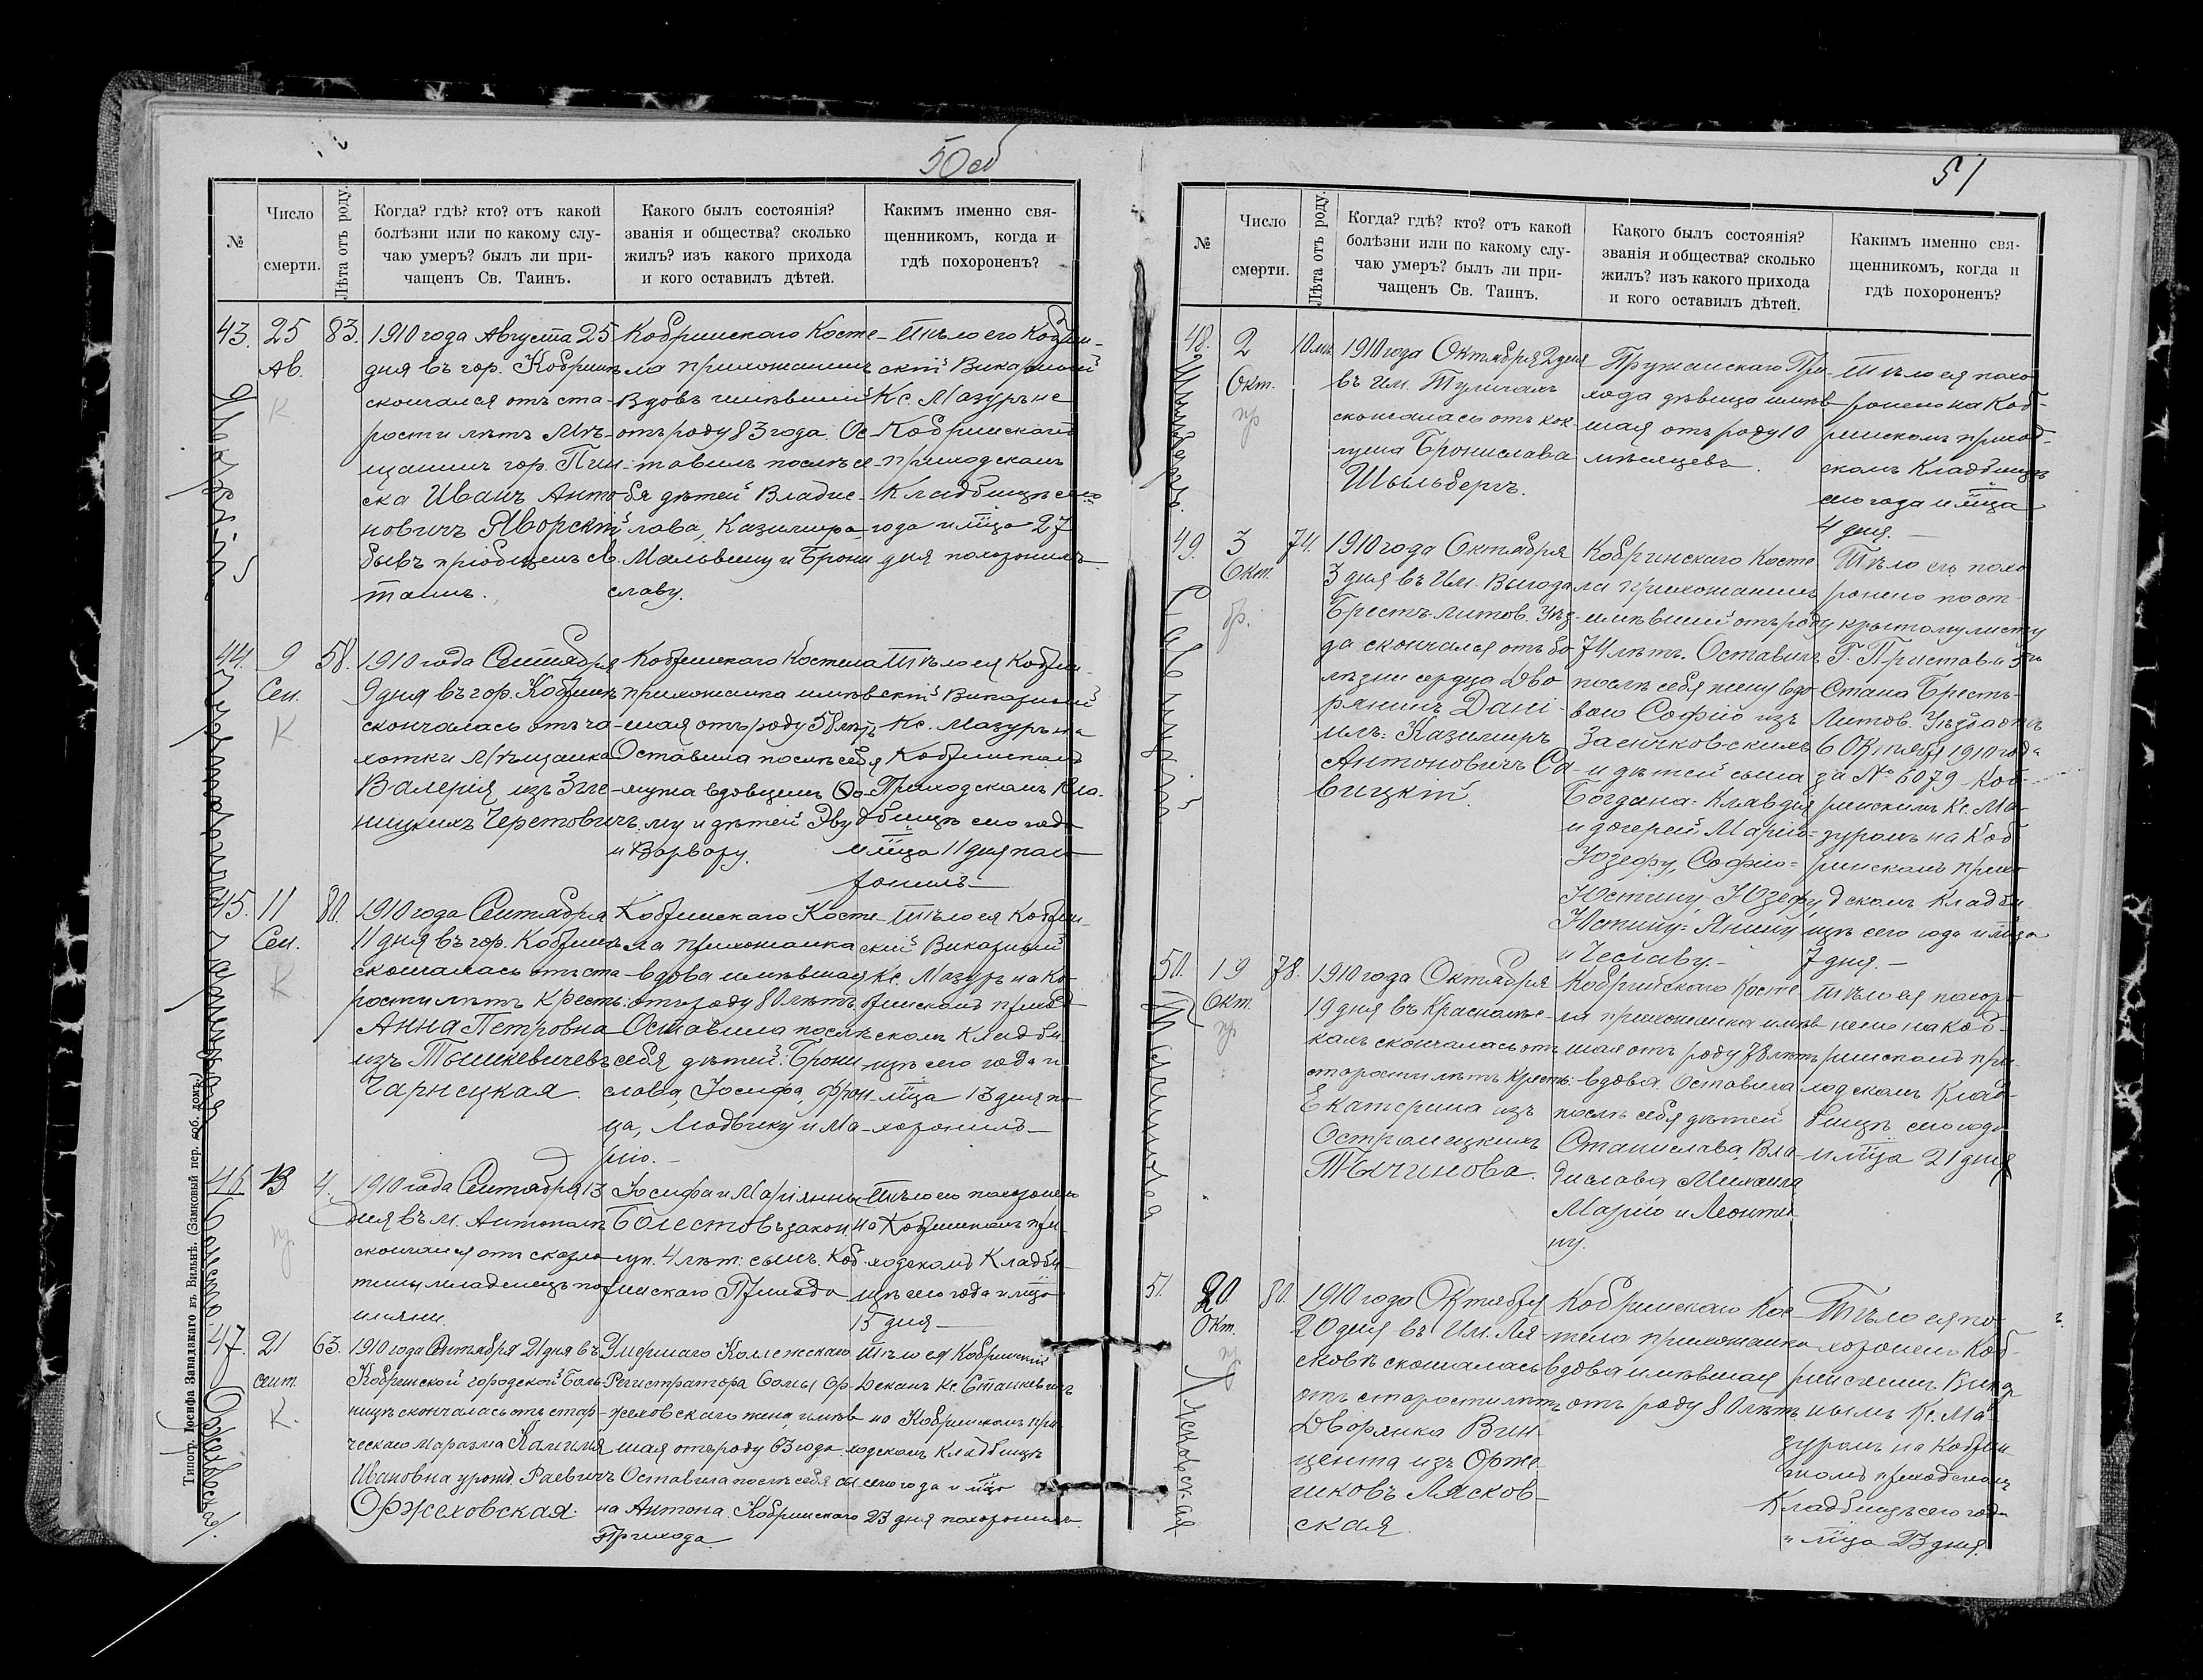 50об
№
Число смерти.
Лѣта отъ роду.
Когда? гдѣ? кто? отъ какой
болѣзни или по какому слу-
чаю умеръ? былъ ли при-
чащенъ Св. Таинъ.
Какого былъ состоянія?
званія и общества? сколько
жилъ? изъ какого прихода
и кого оставилъ дѣтей.
Какимъ именно свя-
щенникомъ, когда и
гдѣ похороненъ?
43.
25
Ав.
К
83.
1910 года Августа 25
дня въ гор. Кобринѣ
скончался отъ ста-
рости лѣтъ Мѣ-
щанинъ гор. Пин-
ска Иванъ Анто-
новичъ Яворскій
бывъ пріобщенъ Св.
таинъ.
Кобринскаго Косте-
ла прихожанинъ
вдовъ имѣвшій
отъ роду 83 года. Ос-
тавилъ послѣ се-
бя дѣтей Владис-
лава, Казимира,
Мальвину и Брони
славу.
Тѣло его Кобрин-
скій Викарный
Кс. Мазуръ на
Кобринскомъ
приходскомъ
Кладбищѣ сего
года и мѣсяца 27
дня похоронилъ
44.
9
Сен.
К
58.
1910 года Сентября
9 дня въ гор. Кобринѣ
скончалась отъ ча-
хотки Мѣщанка
Валерія изъ Зге-
ницкихъ Черетовичъ.
Кобринскаго Костела
прихожанка имѣв
шая отъ роду 58 лѣтъ
Оставила послѣ себя
мужа вдовцемъ Ѳо-
му и дѣтей Эву
и Варвару.
Тѣло ея Кобрин-
скій Викарный
Кс. Мазуръ на
Кобринскомъ
Приходскомъ Кла-
дбищѣ сего года
и мѣсяца 11 дня похо
ронилъ
45.
11
Сен.
К
80.
1910 года Сентября
11 дня въ гор. Кобринѣ
скончалась отъ ста-
рости лѣтъ Крестъ:
Анна Петровна
изъ Тышкевичевъ
Чарнецкая.
Кобринскаго Косте-
ла прихожанка
вдова имѣвшая
отъ роду 80 лѣтъ.
Оставила послѣ
себя дѣтей: Брони
слава, Іосифа, Фран-
ца, Людвику и Ма-
рію.
Тѣло ея Кобрин-
скій Викарный
Кс. Мазуръ на Ко-
бринскомъ приход
скомъ Кладби
щѣ сего года и
мѣсяца 13 дня по-
хоронилъ
46.
13
пр
4.
1910 года Сентября 13
дня въ м. Антополѣ
скончался отъ скарла
тины младенецъ по
имени
Іосифа и Маріянны
Болестовъ закон.
суп. 4 лѣт. сынъ. Коб
ринскаго Прихода
Тѣло его похоронено
на Кобринскомъ при
ходскомъ Кладби
щѣ сего года и мѣсяца
15 дня
47.
21
сент.
К.
63.
1910 года Сентября 21 дня въ
Кобринской городской Боль-
ницѣ скончалась отъ стар-
ческаго маразма Камилія
Ивановна урожд. Раевичъ
Оржеховская.
Умершаго Коллежскаго
Регистратора Фомы Ор-
жеховскаго жена имѣв
шая отъ роду 63 года.
Оставила послѣ себя сы
на Антона Кобринскаго
Прихода.
Тѣло ея Кобринскій
Деканъ Кс. Станкевичъ
на Кобринскомъ при
ходскомъ Кладбищѣ
сего года и мѣсяца
23 дня похоронилъ
Яворскій
Оржеховская.
Типогр. Іосифа Завадзкаго въ Вильнѣ. (Замковый пер. соб. домъ.)
51
№
Число смерти.
Лѣта отъ роду.
Когда? гдѣ? кто? отъ какой
болѣзни или по какому слу-
чаю умеръ? былъ ли при-
чащенъ Св. Таинъ.
Какого былъ состоянія?
званія и общества? сколько
жилъ? изъ какого прихода
и кого оставилъ дѣтей.
Какимъ именно свя-
щенникомъ, когда и
гдѣ похороненъ?
48.
2
Окт.
пр
10 мѣс.
1910 года Октября 2 дня
въ им. Туличахъ
скончалась отъ кок-
люша Бронислава
Шыльбергъ.
Пружанскаго При-
хода дѣвица имѣв-
шая отъ роду 10
мѣсяцевъ.
Тѣло ея похо
ронено на Коб-
ринскомъ приход-
скомъ Кладбищѣ
сего года и мѣсяца
4 дня.
49.
3
Окт.
бр.
74.
1910 года Октября
3 дня въ Им. Выгода
Брестъ-Литов. Уѣз-
да скончался отъ бо
лѣзни сердца Дво-
рянинъ Дані-
илъ-Казимиръ
Антоновичъ Са-
вицкій.
Кобринскаго Косте
ла прихожанинъ
имѣвшій отъ роду
74 лѣтъ. Оставилъ
послѣ себя жену вдо
вою Софію изъ
и дѣтей сына
Богдана-Клавдія
и дочерей Марію-
Юзефу, Софію-
Юстину, Юзефу,
Юстину-Янину
и Чеславу.
Тѣло его похо
ронено по от-
крытому листу
Г. Пристава 5го
Стана Брестъ-
Литов. Уѣзда отъ
6 Октября 1910 года
за № 6079 Коб-
ринскимъ Кс. Ма-
зуромъ на Коб
ринскомъ прихо
дскомъ Кладби
щѣ сего года и мѣсяца
7 дня.
50.
19
Окт.
пр
78.
1910 года Октября
19 дня въ
скончалась отъ
старости лѣтъ Крест.
Екатерина изъ
Остромецкихъ
Тычинова.
Кобринскаго Косте
ла прихожанка имѣв
шая отъ роду 78 лѣтъ
вдова. Оставила
послѣ себя дѣтей
Станислава, Вла
дислава Михаила
Марію и Леонти
ну.
Тѣло ея похор-
нено на Коб-
ринскомъ при-
ходскомъ Клад-
бищѣ сего года
и мѣсяца 21 дня
51.
20
Окт.
пр
80.
1910 года Октября
20 дня въ Им. Ля-
сковѣ скончалась
отъ старости лѣтъ
Дворянка Вин
цента изъ Орже-
шковъ Лясков-
ская.
Кобринскаго Кос
тела прихожанка
вдова имѣвшая
отъ роду 80 лѣтъ
Тѣло ея по-
хоронено Коб-
ринскимъ Викар
нымъ Кс. Ма
зуромъ на Кобрин
скомъ приходскомъ
Кладбищѣ сего года
и мѣсяца 23 дня.
Шыльбергъ.
Савицкій
Тычинова
Лясковская